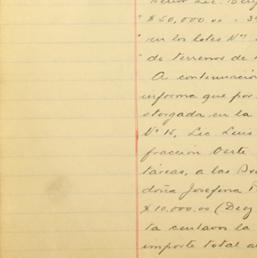 Señor Lic.
$50,000.00 - 3
en los lotes Nos
de terrenos de
A continuación
informa que por
otorgada en la
No 16, Lic. Luis
fracción Oeste
táreas, a las
doña Josefina
$10,000.00 (Diez
ta centavos la
importe total a